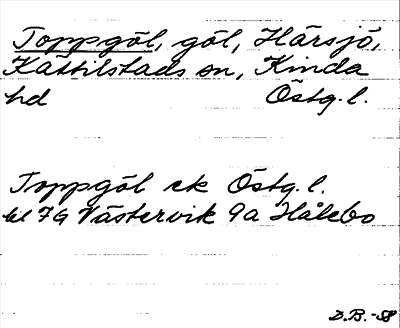 Toppgöl, göl, Härsjö,
Kättilstads sn, Kinda
hd Östg. l.
Toppgöl ek Östg. l.
bl 7G Västervik 9a Hålebo
D.B. -58